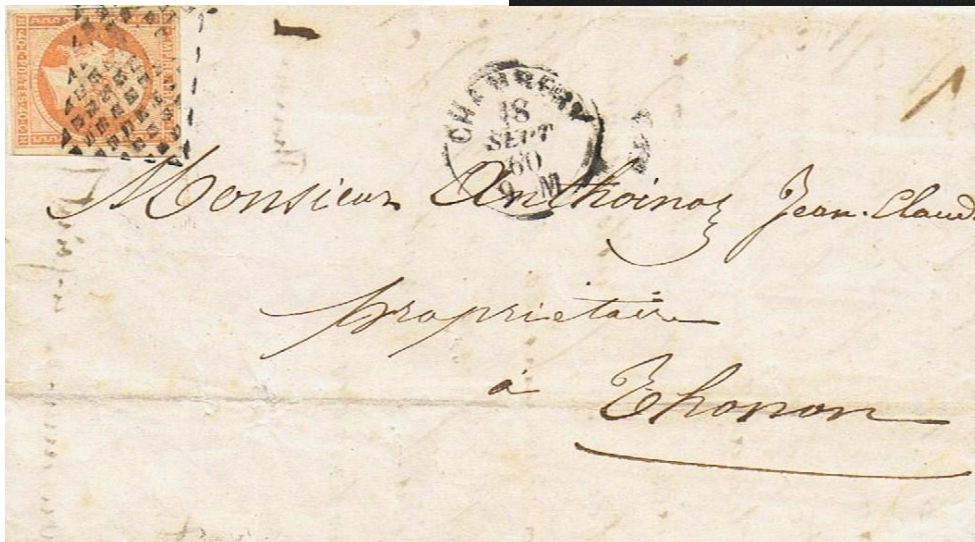 CHAMBERY
18
SEPT
60
9 M
Monsieur Anthoinoz Jean-Claud
propriétaire
à Thonon